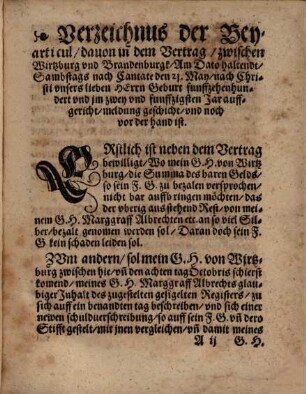 Verzeichnus der Bey-
arti cul / dauon in dem Vertrag / zwischen
Wirtzburg vnd Brandenburgk / Am Dato haltendt /
Sambstags nach Cantate den 21. May / nach Chri-
sti vnsers lieben HErrn Geburt funffzehenhun-
dert vnd jm zwey vnd funffzigsten Jar auff-
gericht / meldung geschicht / vnd noch
vor der hand ist.
ERstlich ist neben dem Vertrag
bewilligt / Wo mein G. H. von Wirtz
burg / die Summa des baren Gelds /
so sein F. G. zu bezalen versprochen /
nicht bar auffbringen möchten / das
der vberig ausstehend Rest / von mei
nem G. H. Marggraff Albrechten ett an so viel Sil-
ber / bezalt genomen werden sol / Daran doch sein F.
G kein schaden leiden sol.
ZVm andern / sol mein G. H. von Wirtz-
burg zwischen hie / vñ den achten tag Octobris schierst
komend / meines G. H. Marggraff Albrechts glau-
biger Jnhalt des zugestelten gesigelten Registers / zu
sich auff ein benandten tag beschreiben / vnd sich einer
newen schuldverschreibung / so auff sein F. G. vñ dero
Stifft gestelt / mit jnen vergleichen / vñ damit meines
A ij G. H.